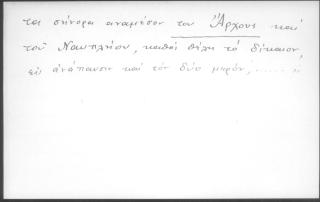 τα σήνορα αναμέσον του Ἄρχους καί
τοῦ Ναυπλήου, καθώς θέλη τό δίκαιον,
εἰς ἀνάπαυσιν καί τόν δύο μερόν, ......